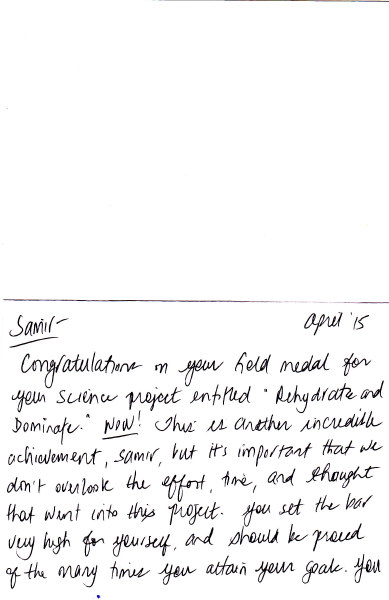 Samir- April '15
Congratulations on your Gold medal for
your science project entitled "Rehydrate and
Dominate." WOW! This is another incredible
achievement, Samir, but it's important that we
don't overlook the effort, time, and thought
that went into this project. You set the bar
very high for yourself, and should be proud
of the many times you attain your goals. You